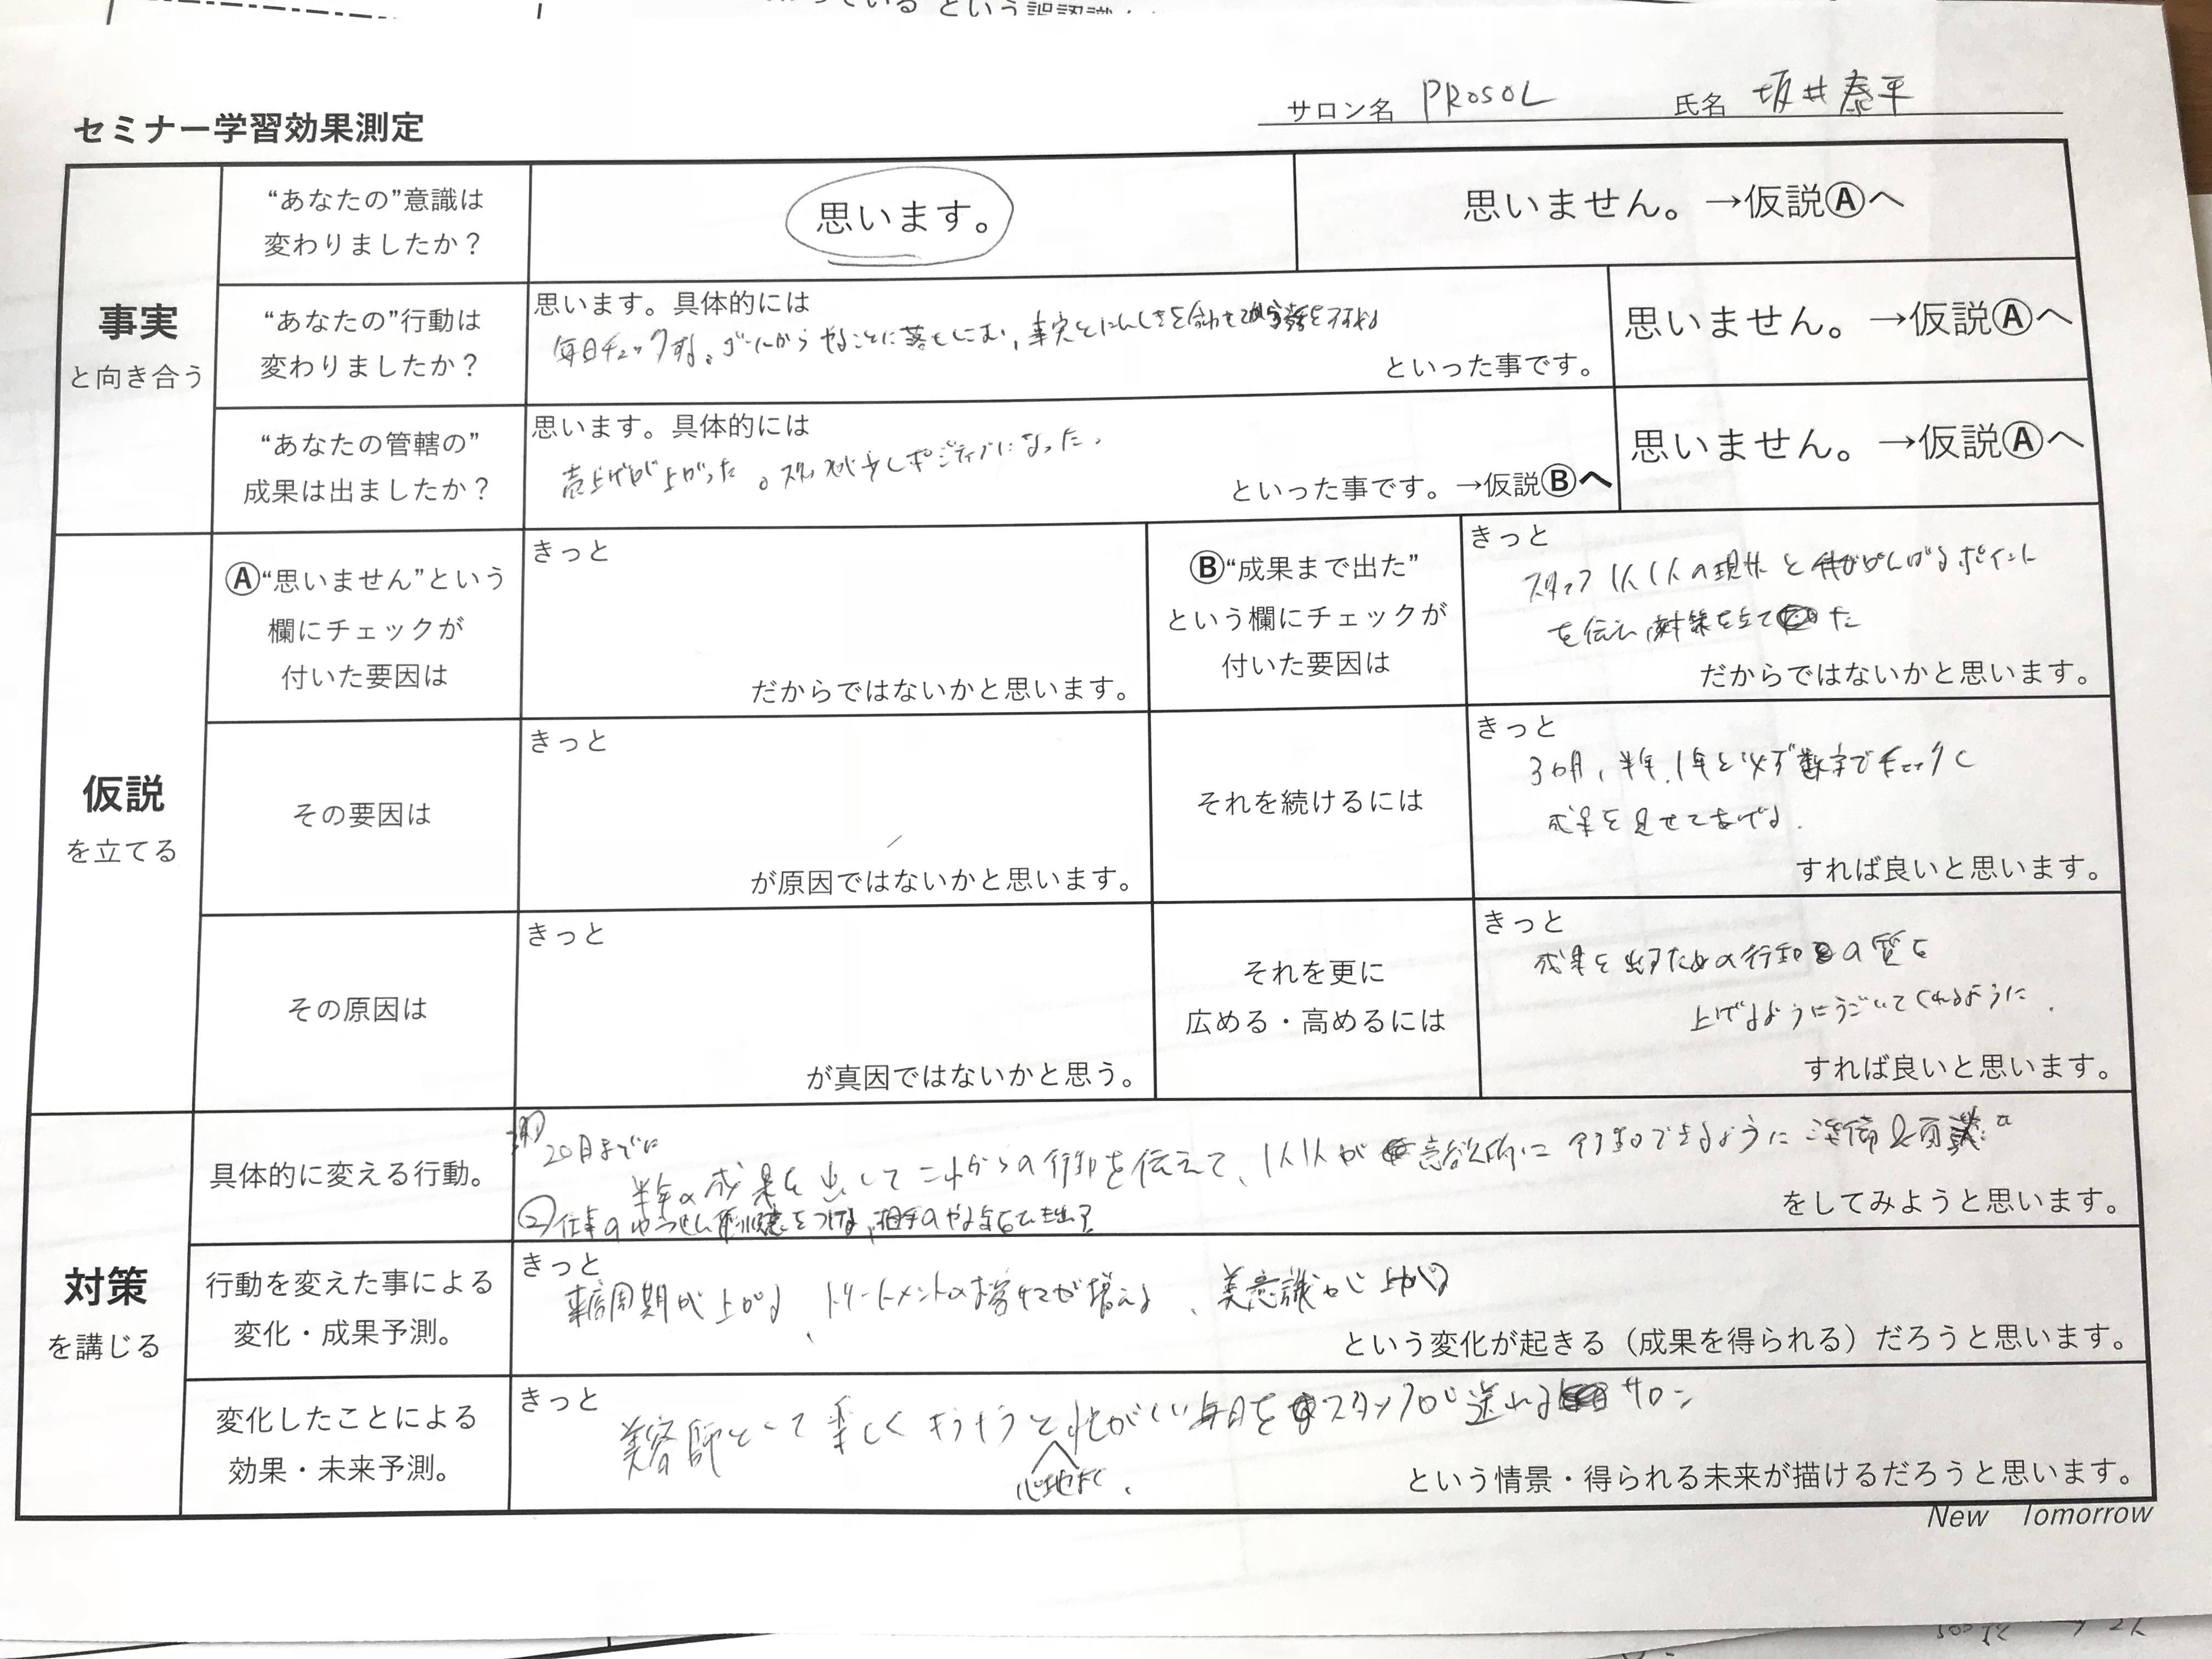 という誤認識
サロン名 PROSOL 氏名 坂井泰平
セミナー学習効果測定
事実
と向き合う
“あなたの”意識は
変わりましたか？
思います。
思いません。→仮説Ⓐへ
“あなたの”行動は
変わりましたか？
思います。具体的には
毎日チェックする。ゴールからやることに落としこむ、事実とにんしきを合わせて会話をする
といった事です。
思いません。→仮説Ⓐへ
“あなたの管轄の”
成果は出ましたか？
思います。具体的には
売上げが上がった。スタッフが少しポジティブになった、
といった事です。→仮説Ⓑへ
思いません。→仮説Ⓐへ
仮説
を立てる
Ⓐ“思いません”という
欄にチェックが
付いた要因は
きっと
だからではないかと思います。
Ⓑ“成果まで出た”
という欄にチェックが
付いた要因は
きっと
スタッフ1人1人の現状とがんばるポイント
を伝え、対策を立てた
だからではないかと思います。
その要因は
きっと
が原因ではないかと思います。
それを続けるには
きっと
3ヶ月、半年、1年と必ず数字でチェックし
成果を見せてあげる.
すれば良いと思います。
その原因は
きっと
が真因ではないかと思う。
それを更に
広める・高めるには
きっと
成果を出すための行動の質を
上げるようにうごいてくれるように.
すれば良いと思います。
対策
を講じる
具体的に変える行動。
20日までに
半年の成果を出してこれからの行動を伝えて、1人1人が意欲的に行動できるように準備&
②仕事のゆうせん順位をつける、相手のやる気を引き出す
をしてみようと思います。
行動を変えた事による
変化・成果予測。
きっと
来店周期が上がる、トリートメントの比率が増える、美意識が上がる
という変化が起きる（成果を得られる）だろうと思います。
変化したことによる
効果・未来予測。
きっと
美容師として楽しくキラキラと忙がしい毎日をスタッフが送れるサロン
心地よく、
という情景・得られる未来が描けるだろうと思います。
New Tomorrow